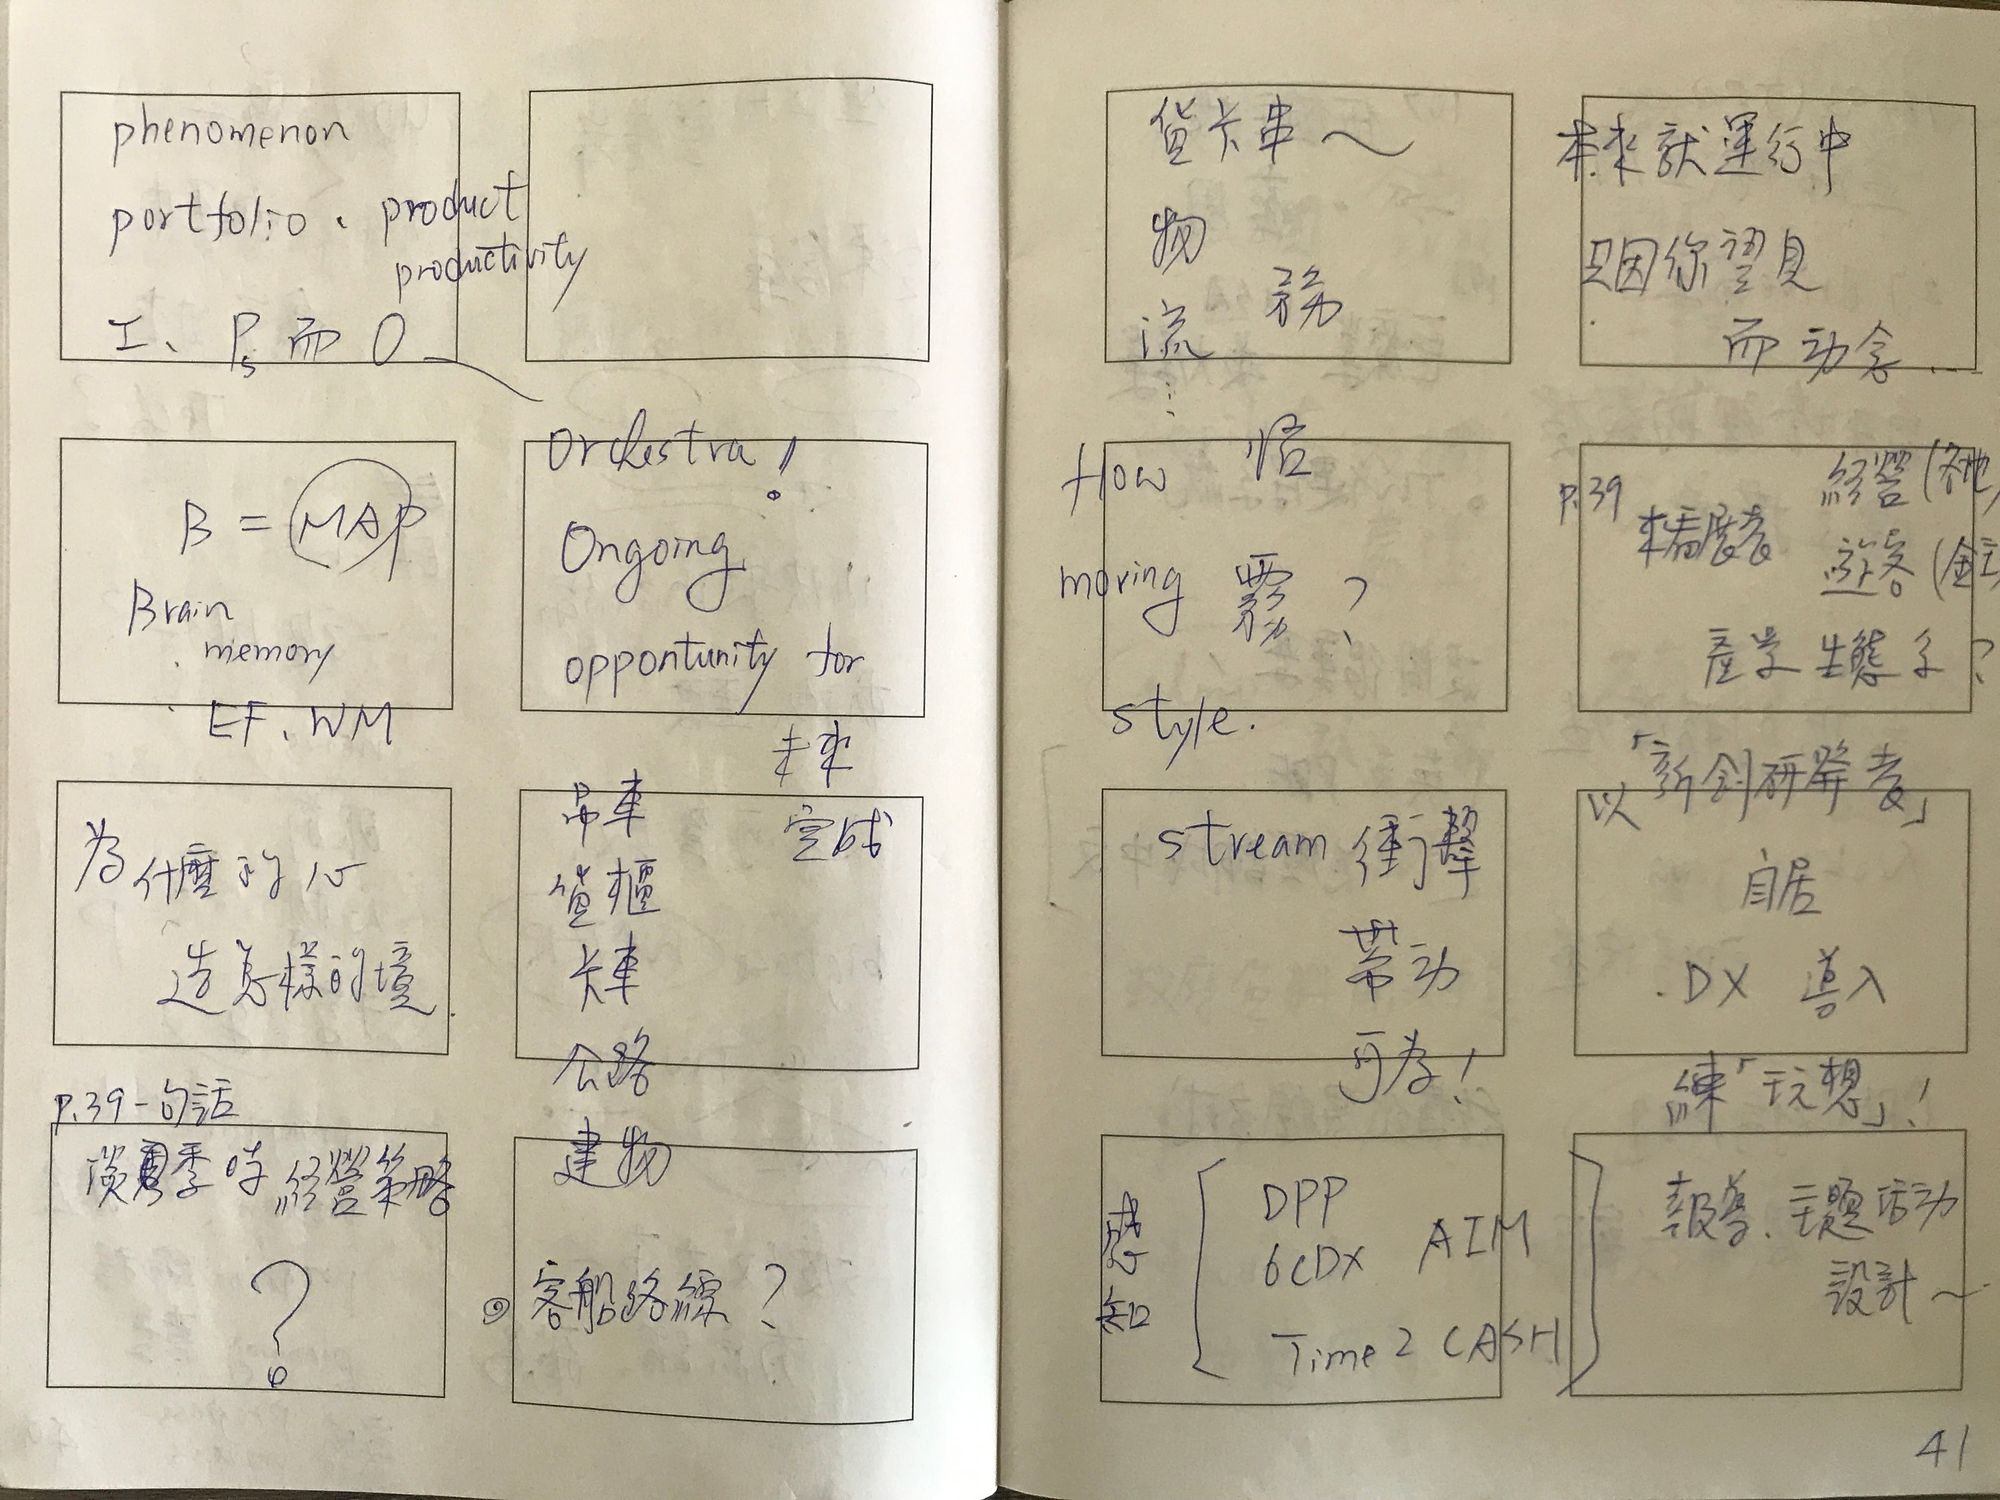 phenomenon
portfolio、product
productivity
I、Ps 而 O
B = MAP
Brain
memory
EF、WM
為什麼的心
造怎樣的境
p.39 一句話
淡季時經營策略
?
Orchestra!
Ongoing
opportunity for
未來
完成
吊車
貨櫃
卡車
公路
建物
客船路線?
貨卡車~
物
流 務
⋮
How 悟
moving 霧?
style.
stream 衝擊
帶動
可為!
感知
DPP
6CDX AIM
Time 2 CASH
本來就運行中
只因你望見
而動念...
p.39
來看展者
經營(各地)
遊客(金主)
產學生態系?
以「新創研發者」
自居
DX 導入
練「玩想」!
報導、主題活動
設計~
41